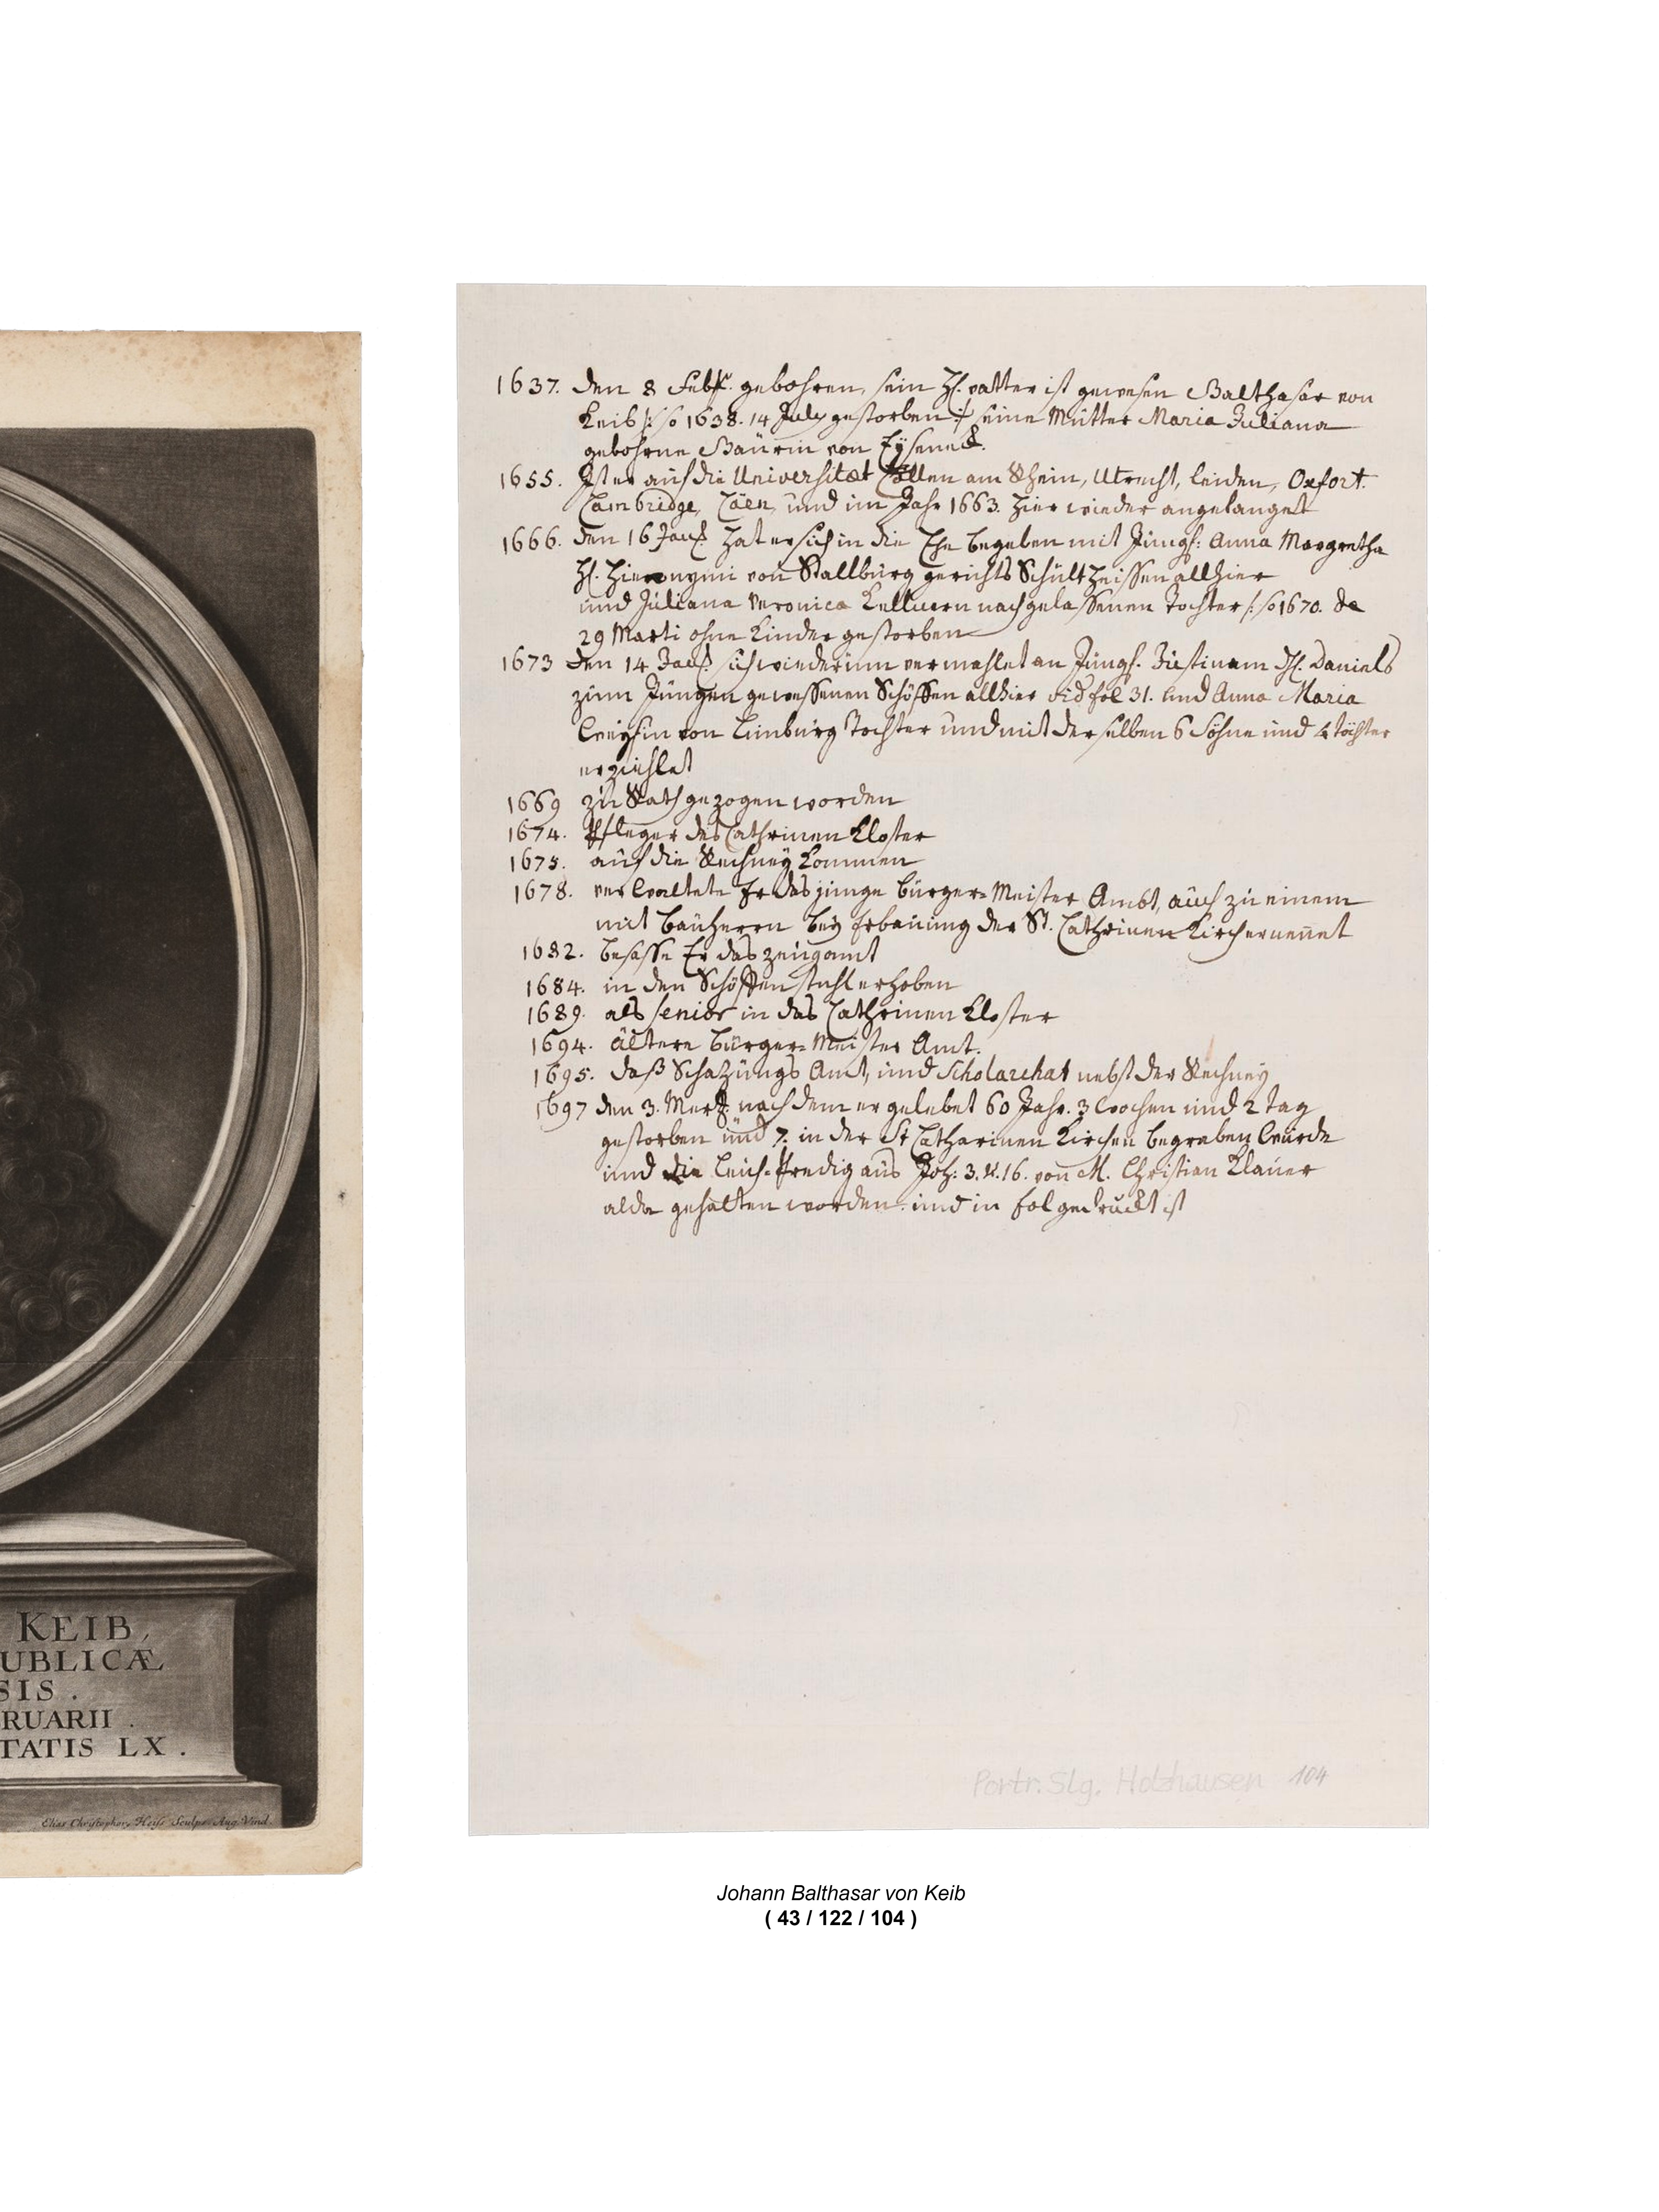 KEIB,
UBLICÆ
SIS.
RUARII.
TATIS LX.
Elias Christopher Heiss Sculps. Aug. Vind.
1637. den 8 Febr. gebohren, sein H. vatter ist gewesen Balthasar von
Keib /: so 1638. 14 July gestorben :/ seine Mutter Maria Juliana
gebohrne Baurin von Eyseneck.
1655. Ist er auf die Universitæt Cöllen am Rhein, Utrecht, Leiden, Oxfort.
Cambridge, Cäen, und im Jahr 1663. hier wieder angelanget
1666. den 16 hat er sich in die Ehe begeben mit Jungf: Anna Margretha
H. Hieronymi von Stallburg gerichts Schultheissen allhier
und Juliana Veronica Kellnern nachgelassenen Tochter /: so 1670. de
29 Marti ohne Kinder gestorben
1673 den 14 sich wiederum vermahlet an Jungf. Justinam H. Daniels
zum Jungen gewessenen Schöffen allhier vid fol 31. und Anna Maria
von Limburg Tochter und mit derselben 6 Söhne und 4 töchter
erziehlet
1669 zu Rath gezogen worden
1674. Pfleger des Cathrinen Kloster
1675. auf die Rechney kommen
1678. verwaltete Er das junge Burger-Meister Ambt, auch zu einem
mit Bauherrn bey Erbauung der St. Cathrinen Kirch ernennet
1682. besasse Er das zeugamt
1684. in den Schöffen stuhl erhoben
1689. als senior in das Cathrinen Kloster
1694. ältere Burger-Meister Amt.
1695. daß Schazungs Amt, und Scholarchat nebst der Rechney
1697 den 3. Mertz nach dem er gelebet 60 Jahr. 3 wochen und 2 tag
gestorben und 7. in der St Catharinen Kirchen begraben wurde
und die Leich-Predig aus Joh: 3. V. 16. von M. Christian Klauer
alda gehalten worden und in fol gedruckt ist
Portr. Slg. Holzhausen 104
Johann Balthasar von Keib
( 43 / 122 / 104 )